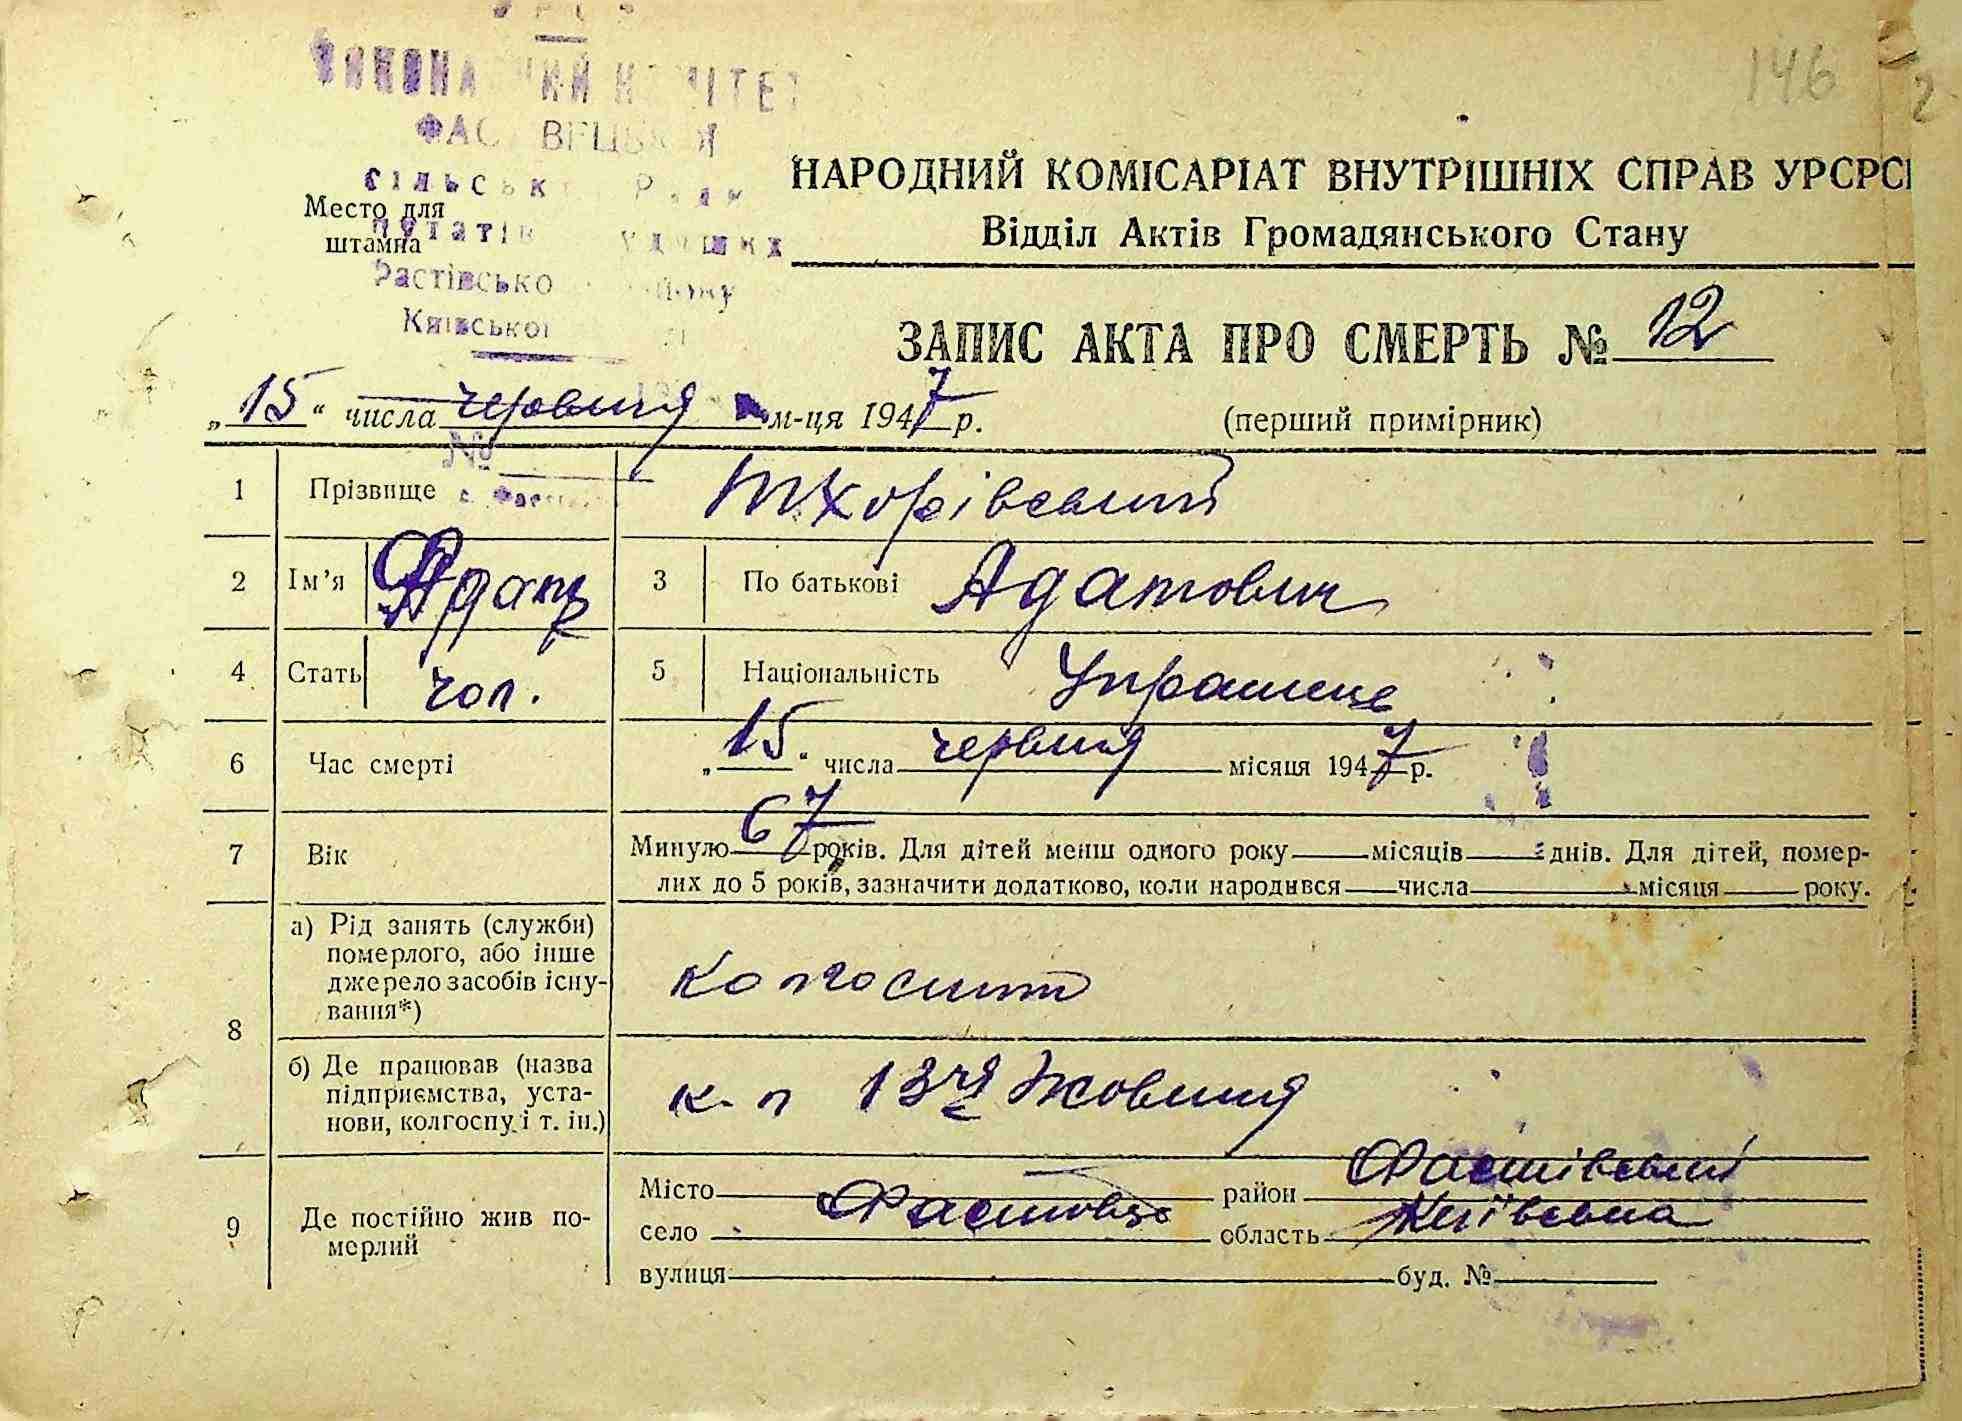 146
2
ФАС ВЕЦЬ
НАРОДНИЙ КОМІСАРІАТ ВНУТРІШНІХ СПРАВ УРСР
Место для
штампа
Відділ Актів Громадянського Стану
Київської
ЗАПИС АКТА ПРО СМЕРТЬ № 12
„15“ числа червня м-ця 1947 р. (перший примірник)
№
1 Прізвище Тхорівський
2 Ім'я Адам 3 По батькові Адамович
4 Стать чол. 5 Національність Українець
6 Час смерті „15“ числа червня місяця 1947 р.
7 Вік Минуло 67 років. Для дітей менш одного року місяців днів. Для дітей, помер-
лих до 5 років, зазначити додатково, коли народився числа місяця року.
8 а) Рід занять (служби)
померлого, або інше
джерело засобів існу-
вання*) колгоспник
б) Де працював (назва
підприємства, уста-
нови, колгоспу і т. ін.) к-п 13 Жовтня
9 Де постійно жив по-
мерлий
Місто район Фастівський
село Фастовець область Київська
вулиця буд. №